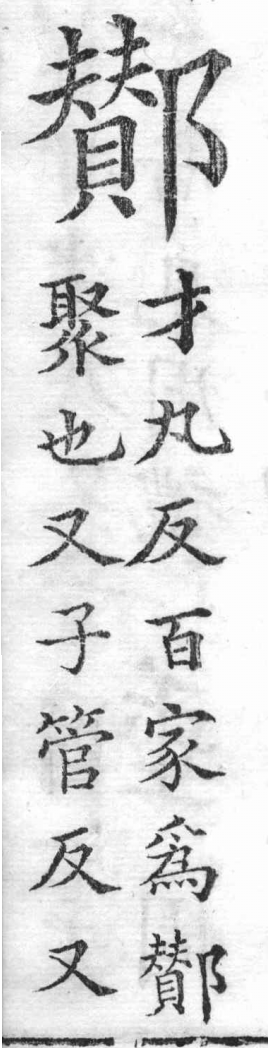 酇
才丸反百家爲酇
聚也又子管反又